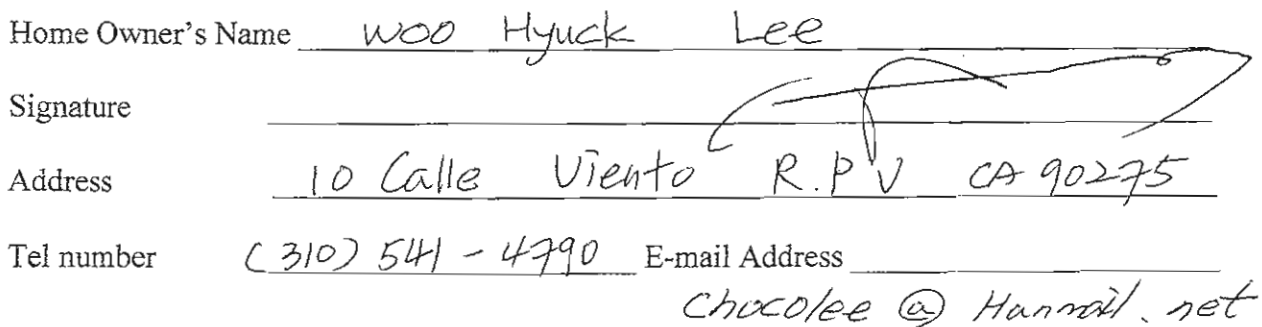 Home Owner's Name Woo Hyuck Lee
Signature
Address 10 Calle Viento R.P.V CA 90275
Tel number (310) 541-4790 E-mail Address
Chocolee @ Hanmail.net